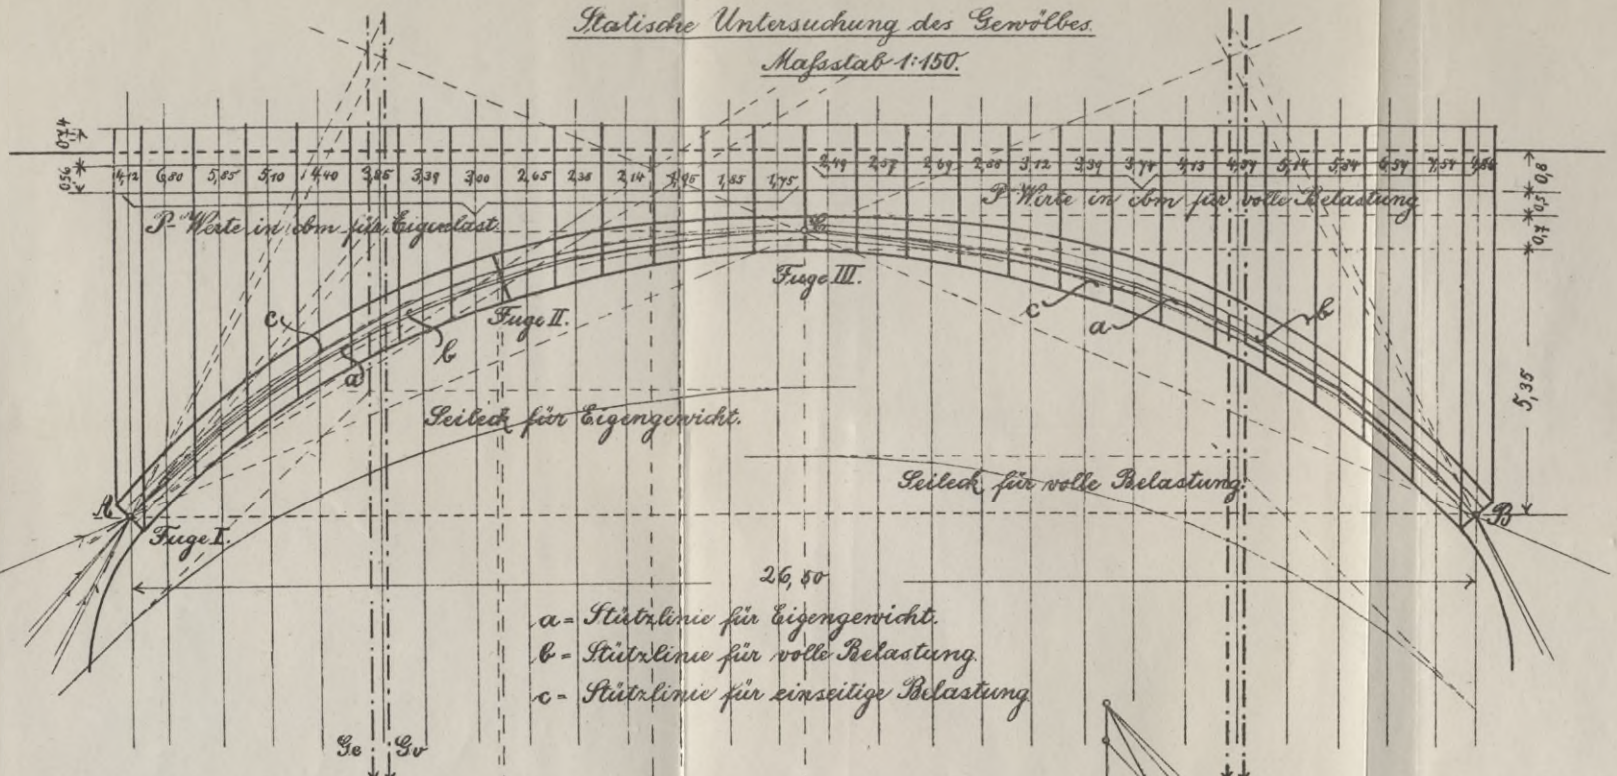 Statische Untersuchung des Gewölbes.
Maßstab 1:150.
4,12 6,80 5,85 5,10 4,40 3,85 3,39 3,00 2,65 2,38 2,14 1,95 1,85 1,75
2,49 2,57 2,69 2,88 3,12 3,39 3,74 4,13 4,57 5,14 5,84 6,57 7,57
0,8
0,5
0,7
5,35
P-Werte in cbm für Eigenlast.
P-Werte in cbm für volle Belastung
c
a
b
Fuge II.
Fuge III.
c
a
b
Seileck für Eigengewicht.
Seileck für volle Belastung.
A
B
Fuge I.
26,50
a = Stützlinie für Eigengewicht.
b = Stützlinie für volle Belastung.
c = Stützlinie für einseitige Belastung
Ge Gv